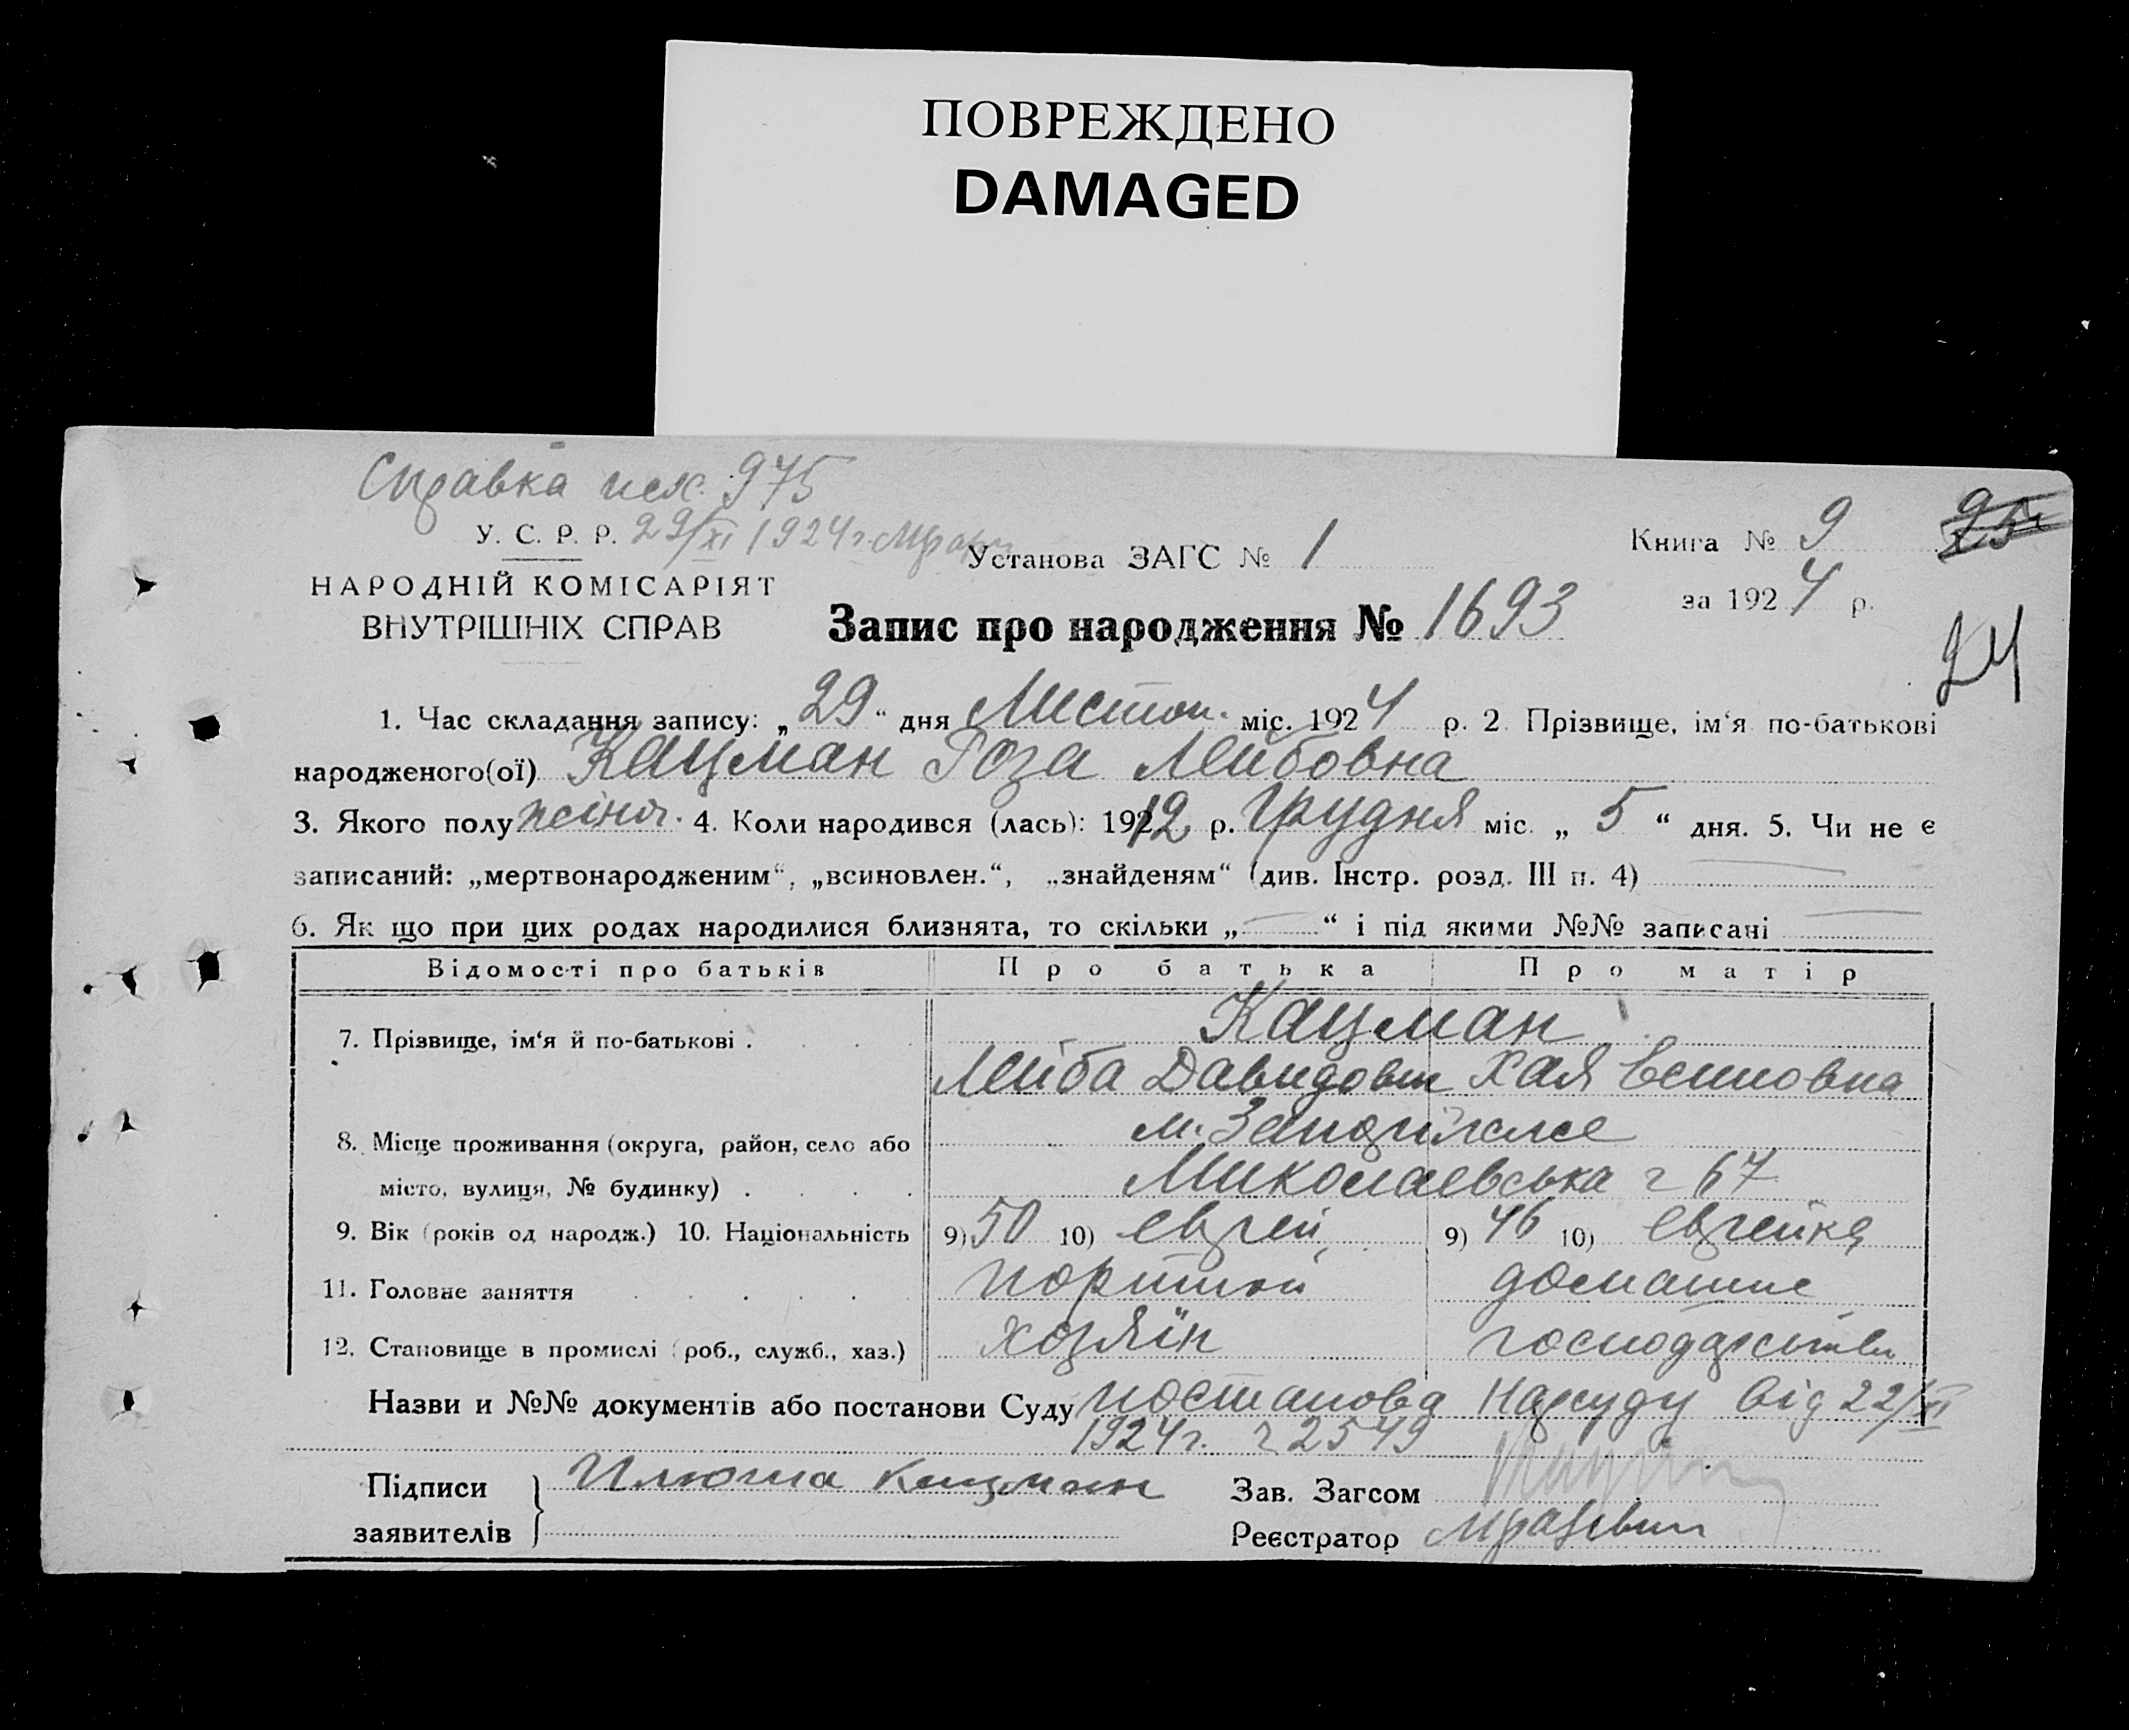 ПОВРЕЖДЕНО
DAMAGED
Справка исх. 975
У. С. Р. Р. 29/XI 1924 г.
Установа ЗАГС № 1
Книга № 9
25
НАРОДНІЙ КОМІСАРІЯТ
ВНУТРІШНІХ СПРАВ
за 1924 р.
Запис про народження № 1693
24
1. Час складання запису: „29“ дня Листоп. міс. 1924 р. 2. Прізвище, ім‘я по-батькові
народженого(ої) Кацман Роза Лейбовна
3. Якого полу жіноч. 4. Коли народився (лась): 1912 р. Грудня міс. „5“ дня. 5. Чи не є
записаний: „мертвонародженим“, „всиновлен.“, „знайденям“ (див. Інстр. розд. III п. 4)
6. Як що при цих родах народилися близнята, то скільки „—“ і під якими №№ записані
Відомості про батьків Про батька Про матір
Кацман
7. Прізвище, ім‘я й по-батькові .
Лейба Давидович Хая
м. Запоріжжє
8. Місце проживання (округа, район, село або
місто, вулиця, № будинку) . Миколаевська 67
9. Вік (років од народж.) 10. Національність 9) 50 10) еврей 9) 46 10) еврейка
11. Головне заняття портной домашнє
12. Становище в промислі (роб., служб., хаз.) хозяїн господарство
Назви и №№ документів або постанови Суду постанова Нарсуду від 22/XI
1924 г. 2549
Підписи
заявителів
Илюша Кацман
Зав. Загсом
Реєстратор